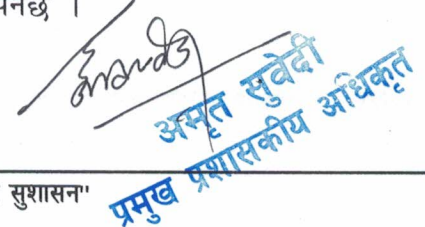 अमृत सुवेदी
प्रमुख प्रशासकीय अधिकृत
सुशासन"